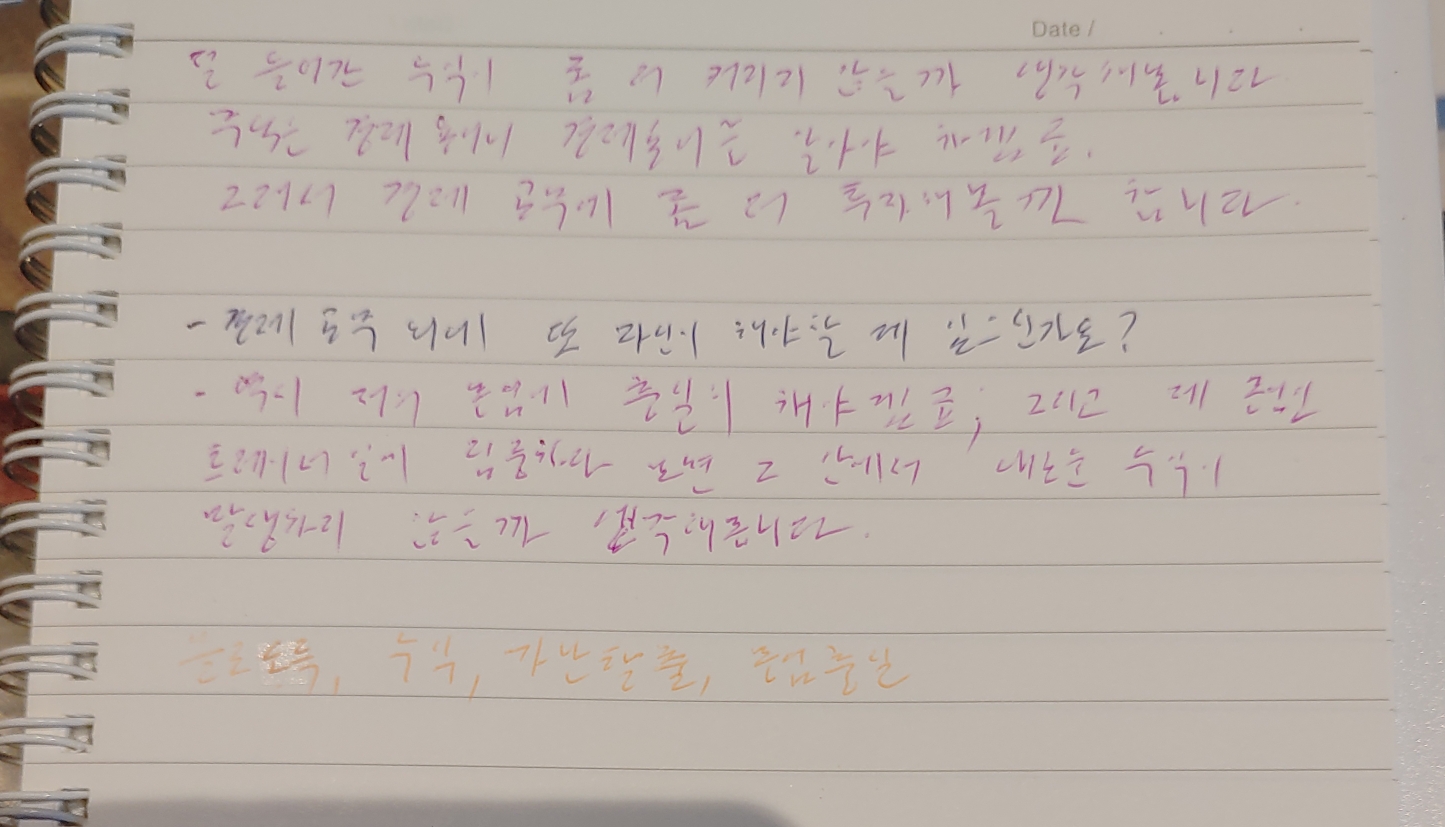 Date /
덜 들어간 수익이 좀 더 커지지 않을까 생각해봅니다
주식은 경제 용어나 경제흐름을 알아야 하겠죠.
그래서 경제 공부에 좀 더 투자해볼까 합니다.
- 경제 공부 외에 또 다른이 해야할 게 있으신가요?
- 역시 저의 본업에 충실히 해야겠죠, 그리고 제 본업인
트레이너 일에 집중하다 보면 그 안에서 새로운 수익이
발생하지 않을까 생각해봅니다.
수익, 가난탈출, 본업충실